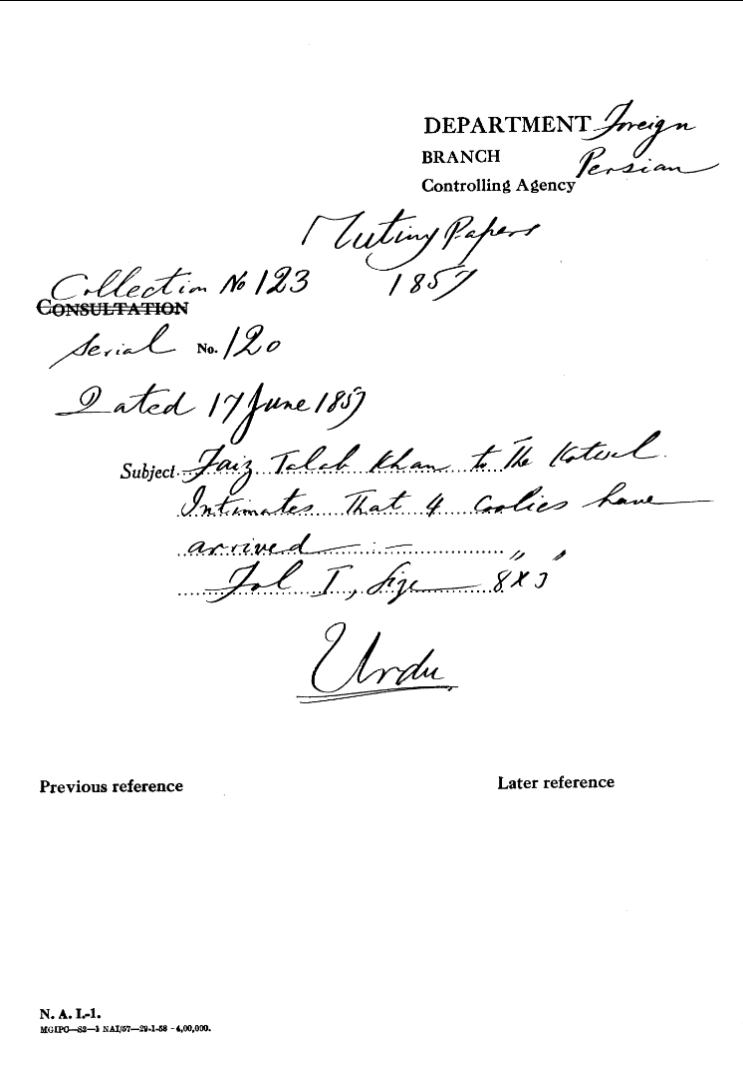 DEPARTMENT Foreign
BRANCH Persian
Controlling Agency
Mutiny Papers
Collection No 123 1857
CONSULTATION
Serial No. 120
Dated 17 June 1857
Subject Faiz Talab Khan to The Kotwal.
Intimates That 4 Coolies have
arrived
Fol I, Size 8" X 5"
Urdu
Previous reference Later reference
N. A. I.-1.
MGIPC—S2—1 NAI/57—29-1-58 -4,00,000.